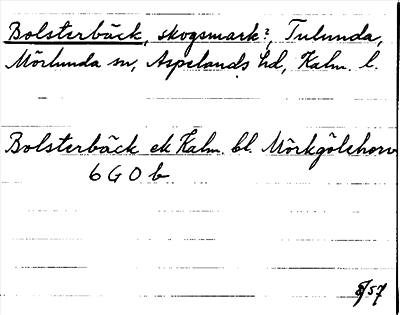 Bolsterbäck, skogsmark?, Tulunda,
Mörlunda sn, Aspelands hd, Kalm. l.
Bolsterbäck ek Kalm. bl. Mörkgölshorv
6 G O b
8/57